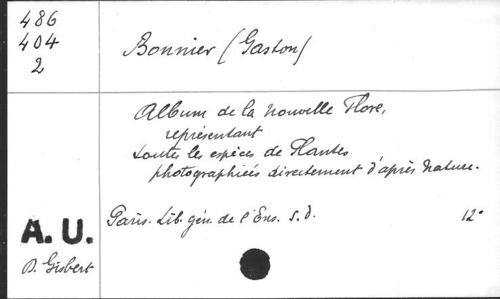 486
404
2
Bonnier (Gaston)
Album de la nouvelle Flore,
représentant
toutes les espèces de Plantes
photographiées directement d'après nature.
Paris. Lib. gén. de l'Ens. s.d. 12°
A. U.
D. Gisbert